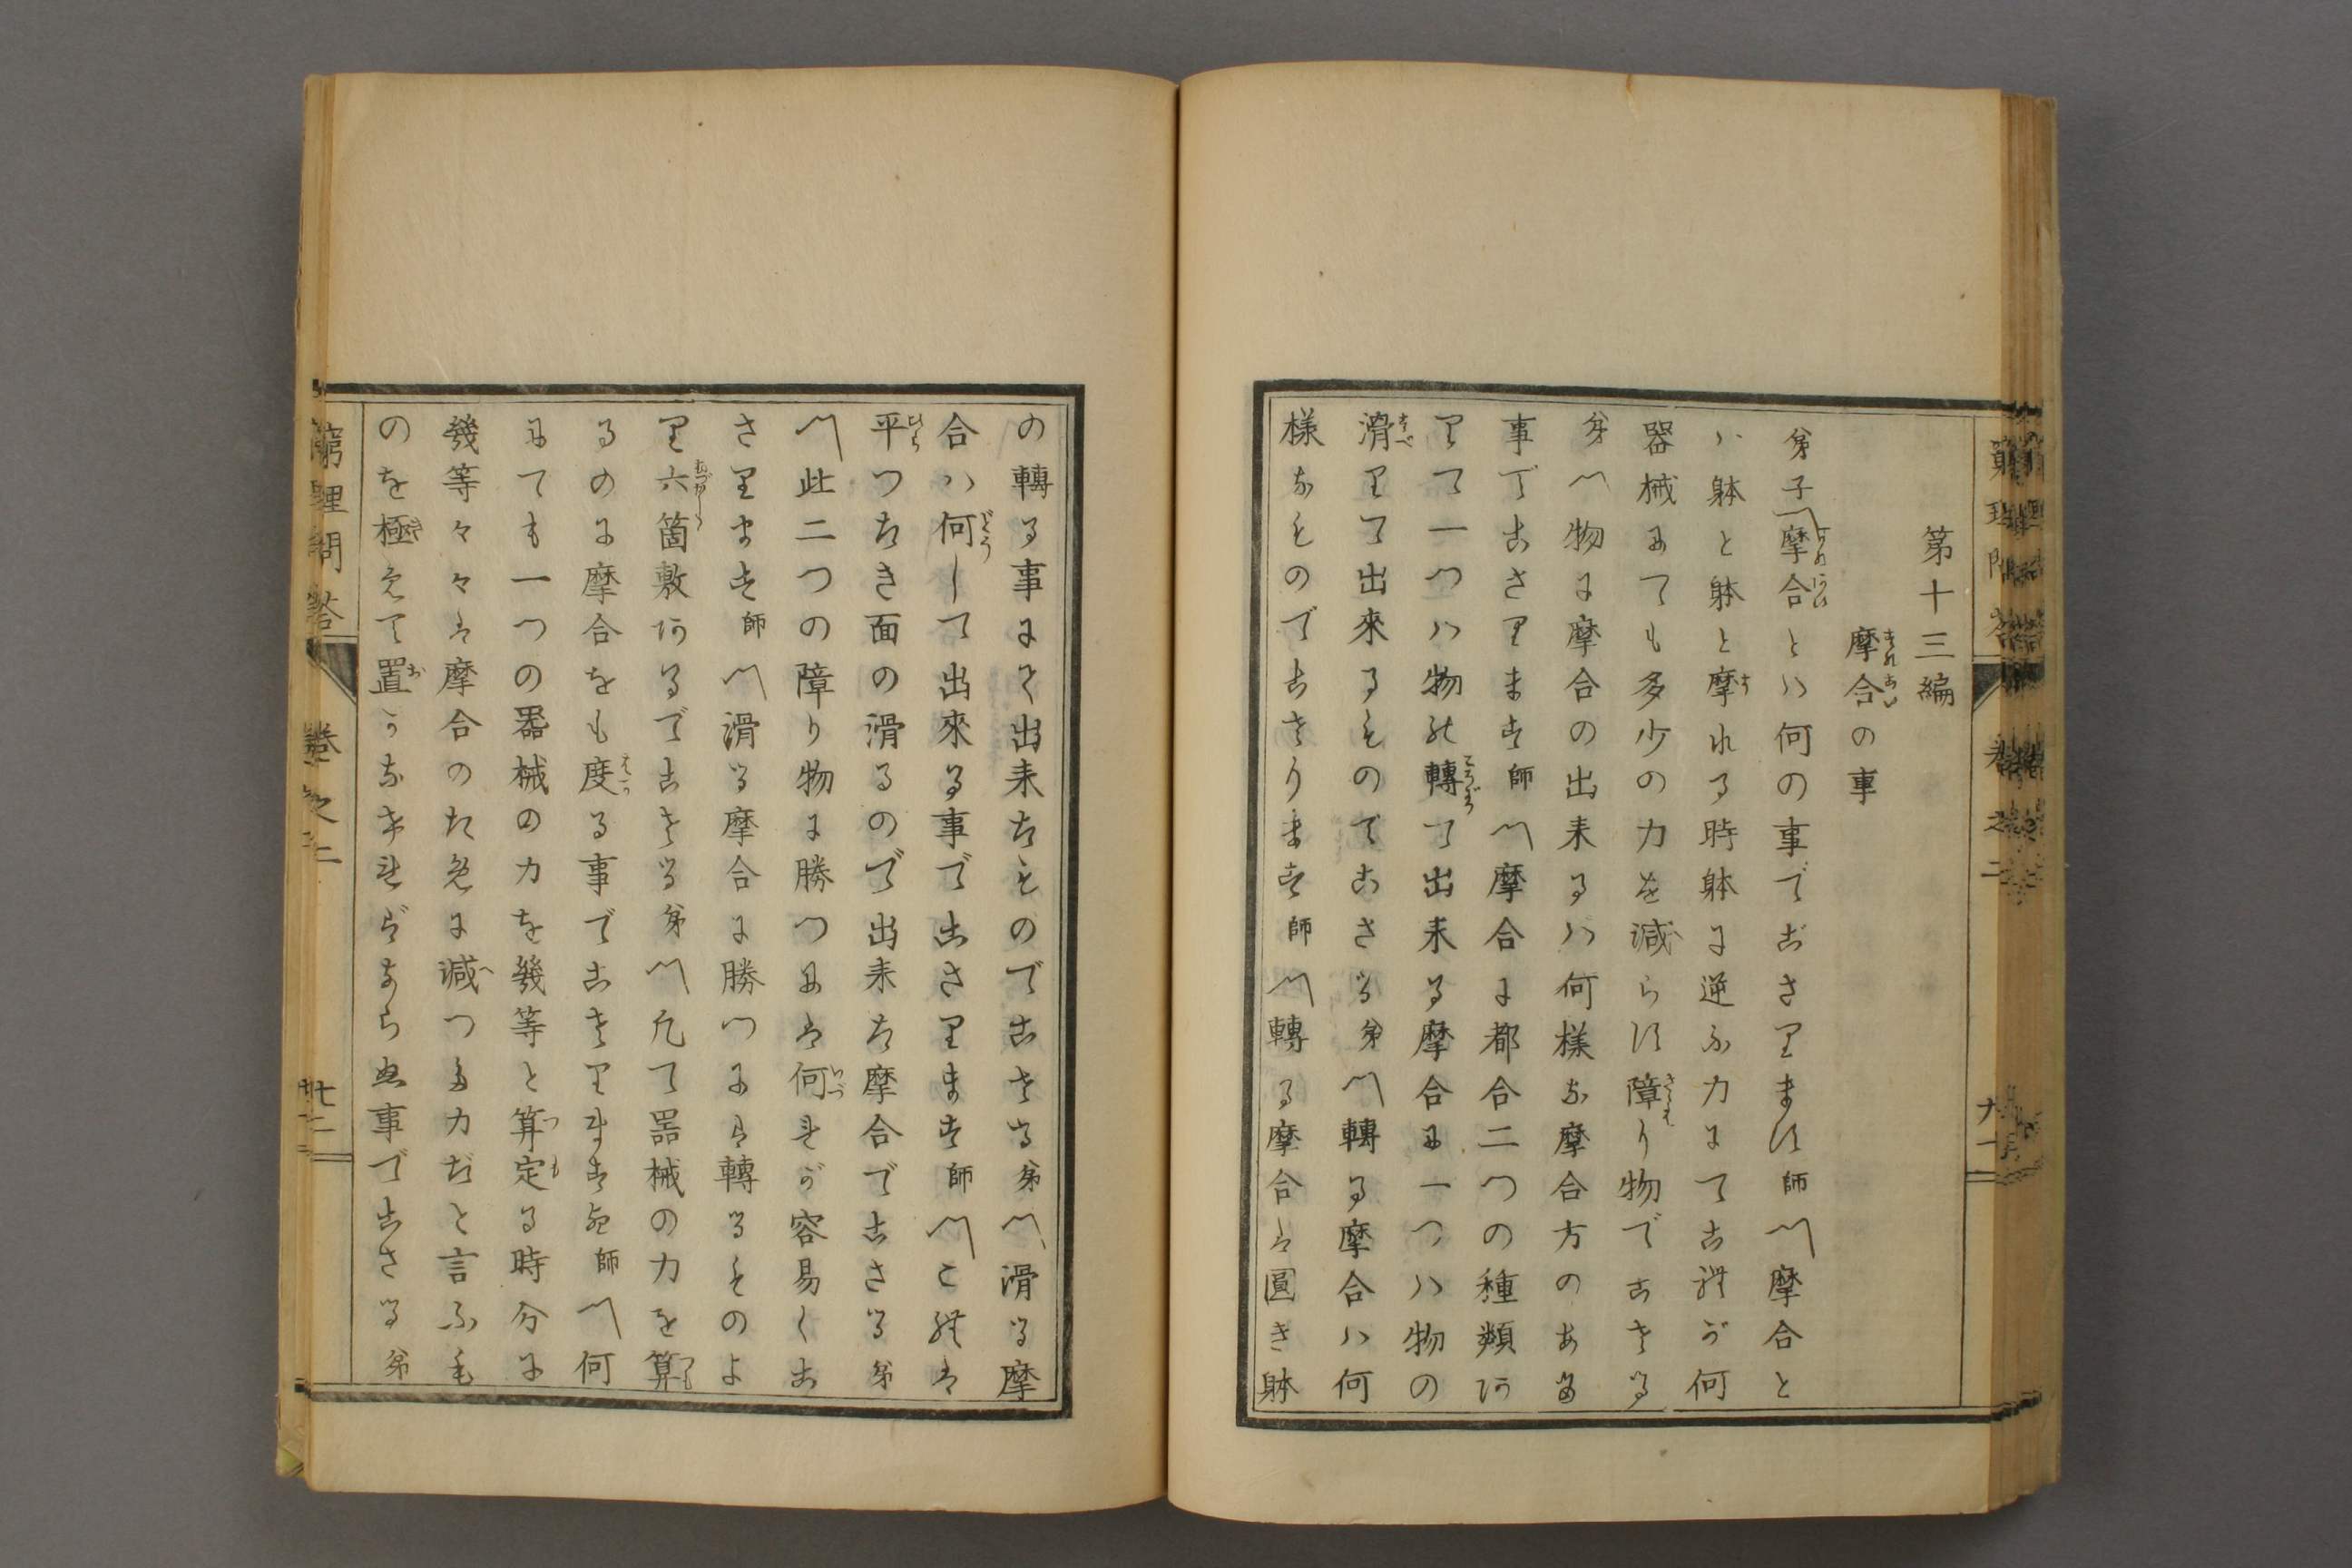 第十三編
摩合の事
弟子〽摩合とハ何の事でござります師〽摩合と
ハ躰と躰と摩れる時躰に逆ふ力にてこれが何
器械にても多少の力を減らす障り物でござる
弟〽物に摩合の出来るハ何樣な摩合方のある
事でござります師〽摩合に都合二つの種類あ
りて一つハ物の轉て出来る摩合に一つハ物の
滑りて出來るものでござる弟〽轉る摩合ハ何
様なものでござります師〽轉る摩合は圓き躰
の轉る事にて出来たものでござる弟〽滑る摩
合ハ何して出來る事でござります師〽これは
平つたき面の滑るので出来た摩合でござる弟
〽此二つの障り物に勝つには何れが容易くご
ざります師〽滑る摩合に勝つには轉るものよ
り六箇敷あるでござる弟〽凡て器械の力を算
るのに摩合をも度る事でござりますか師〽何
にても一つの器械の力を幾等と算定る時分に
幾等々々は摩合のために減つた力だと言ふも
のを極めて置かなければならぬ事でござる弟
窮理問答 卷之二